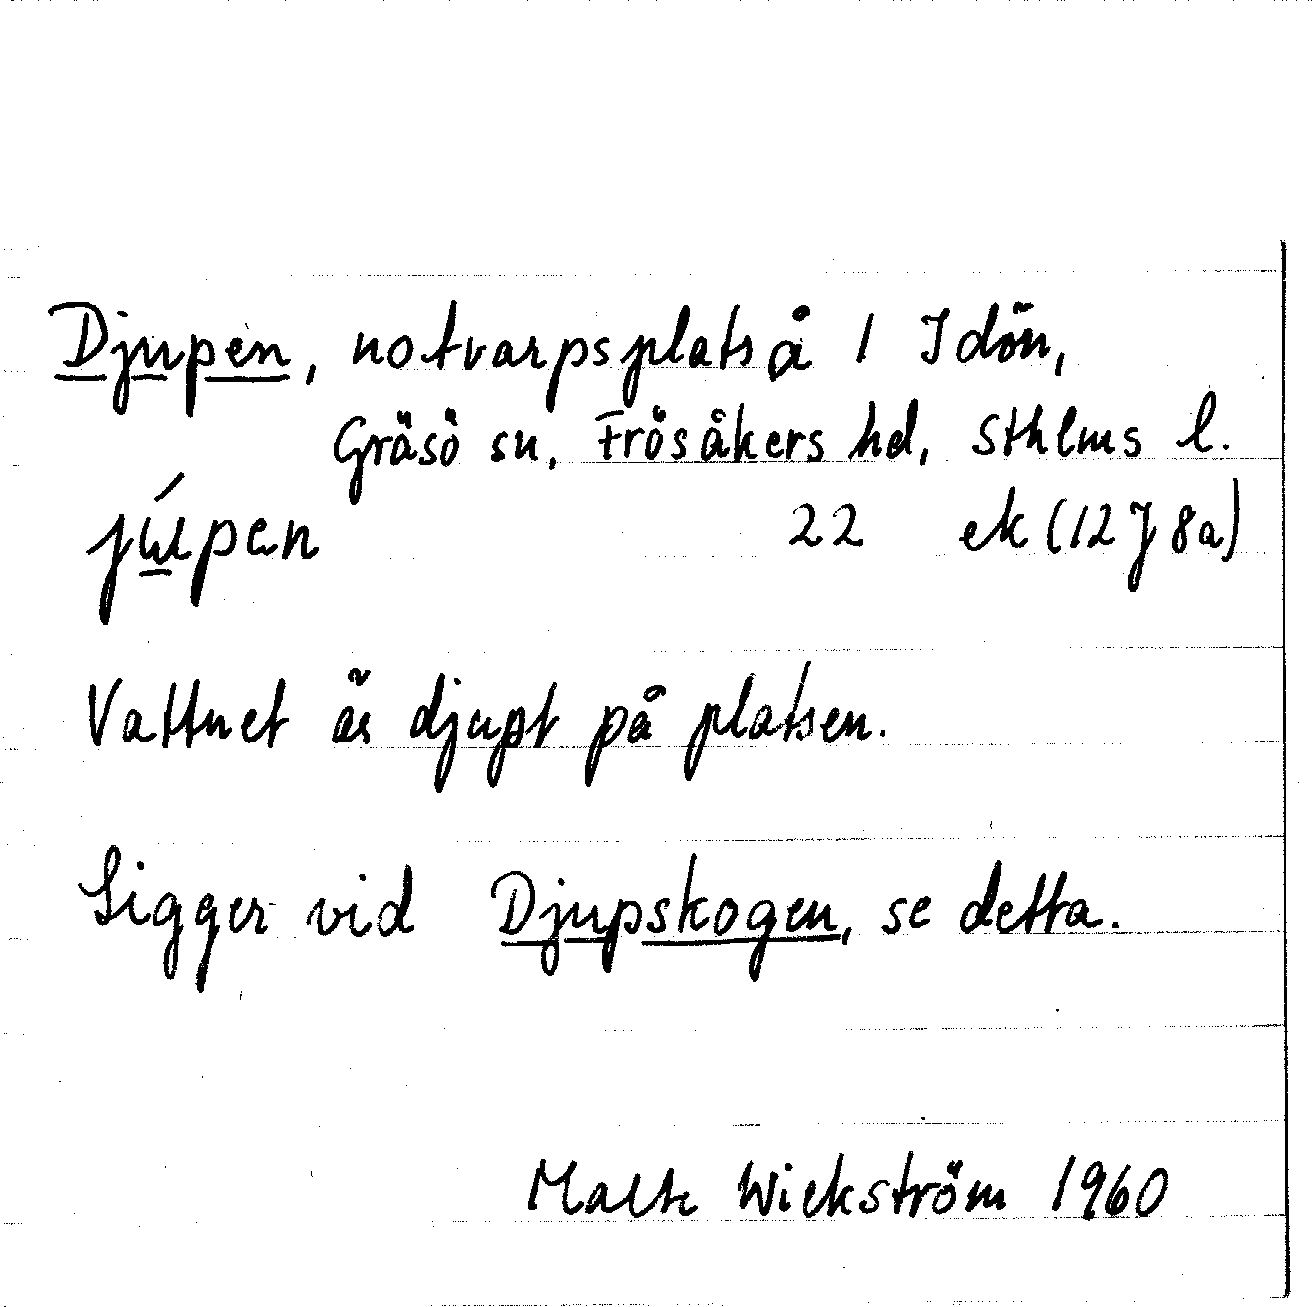 Djupen, notvarpsplats å 1 Idön,
Gräsö sn, Frösåkers hd, Sthlms l.
jú̲pen 22 ek (12 J 8a)
Vattnet är djupt på platsen.
Ligger vid Djupskogen, se detta.
Malte Wickström 1960